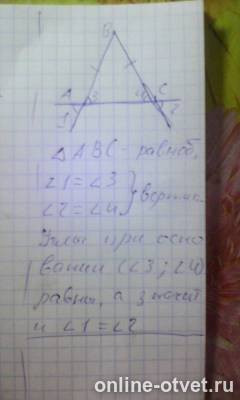 B
A
3
4
C
1
2
ΔABC - равноб.
∠1=∠3
∠2=∠4 } вертик.
Углы при осно
вании (∠3; ∠4)
равны, а значит
и ∠1=∠2
online-otvet.ru